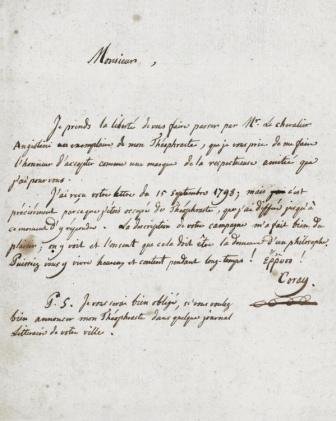 Monsieur,
Je prends la liberté de vous faire passer par Mr. Le chevalier
Angiolini un exemplaire de mon Théophraste, que je vous prie de me faire
l'honneur d'accepter comme une marque de la respectueuse amitié que
j'ai pour vous.
J'ai reçu votre lettre du 15 Septembre 1798; mais c'est
précisément parceque j'étois occupé du Théophraste, que j'ai différé jusqu'à
ce moment d'y répondre. La description de votre campagne m'a fait bien du
plaisir; on y voit et l'on sent que cela doit être la demeure d'un philosophe.
Puissiez vous y vivre heureux et content pendant long-temps! Ἔρρωσο!
Coray.
P. S. Je vous serai bien obligé, si vous voulez
bien annoncer mon Théophraste dans quelque journal
Littéraire de votre ville.